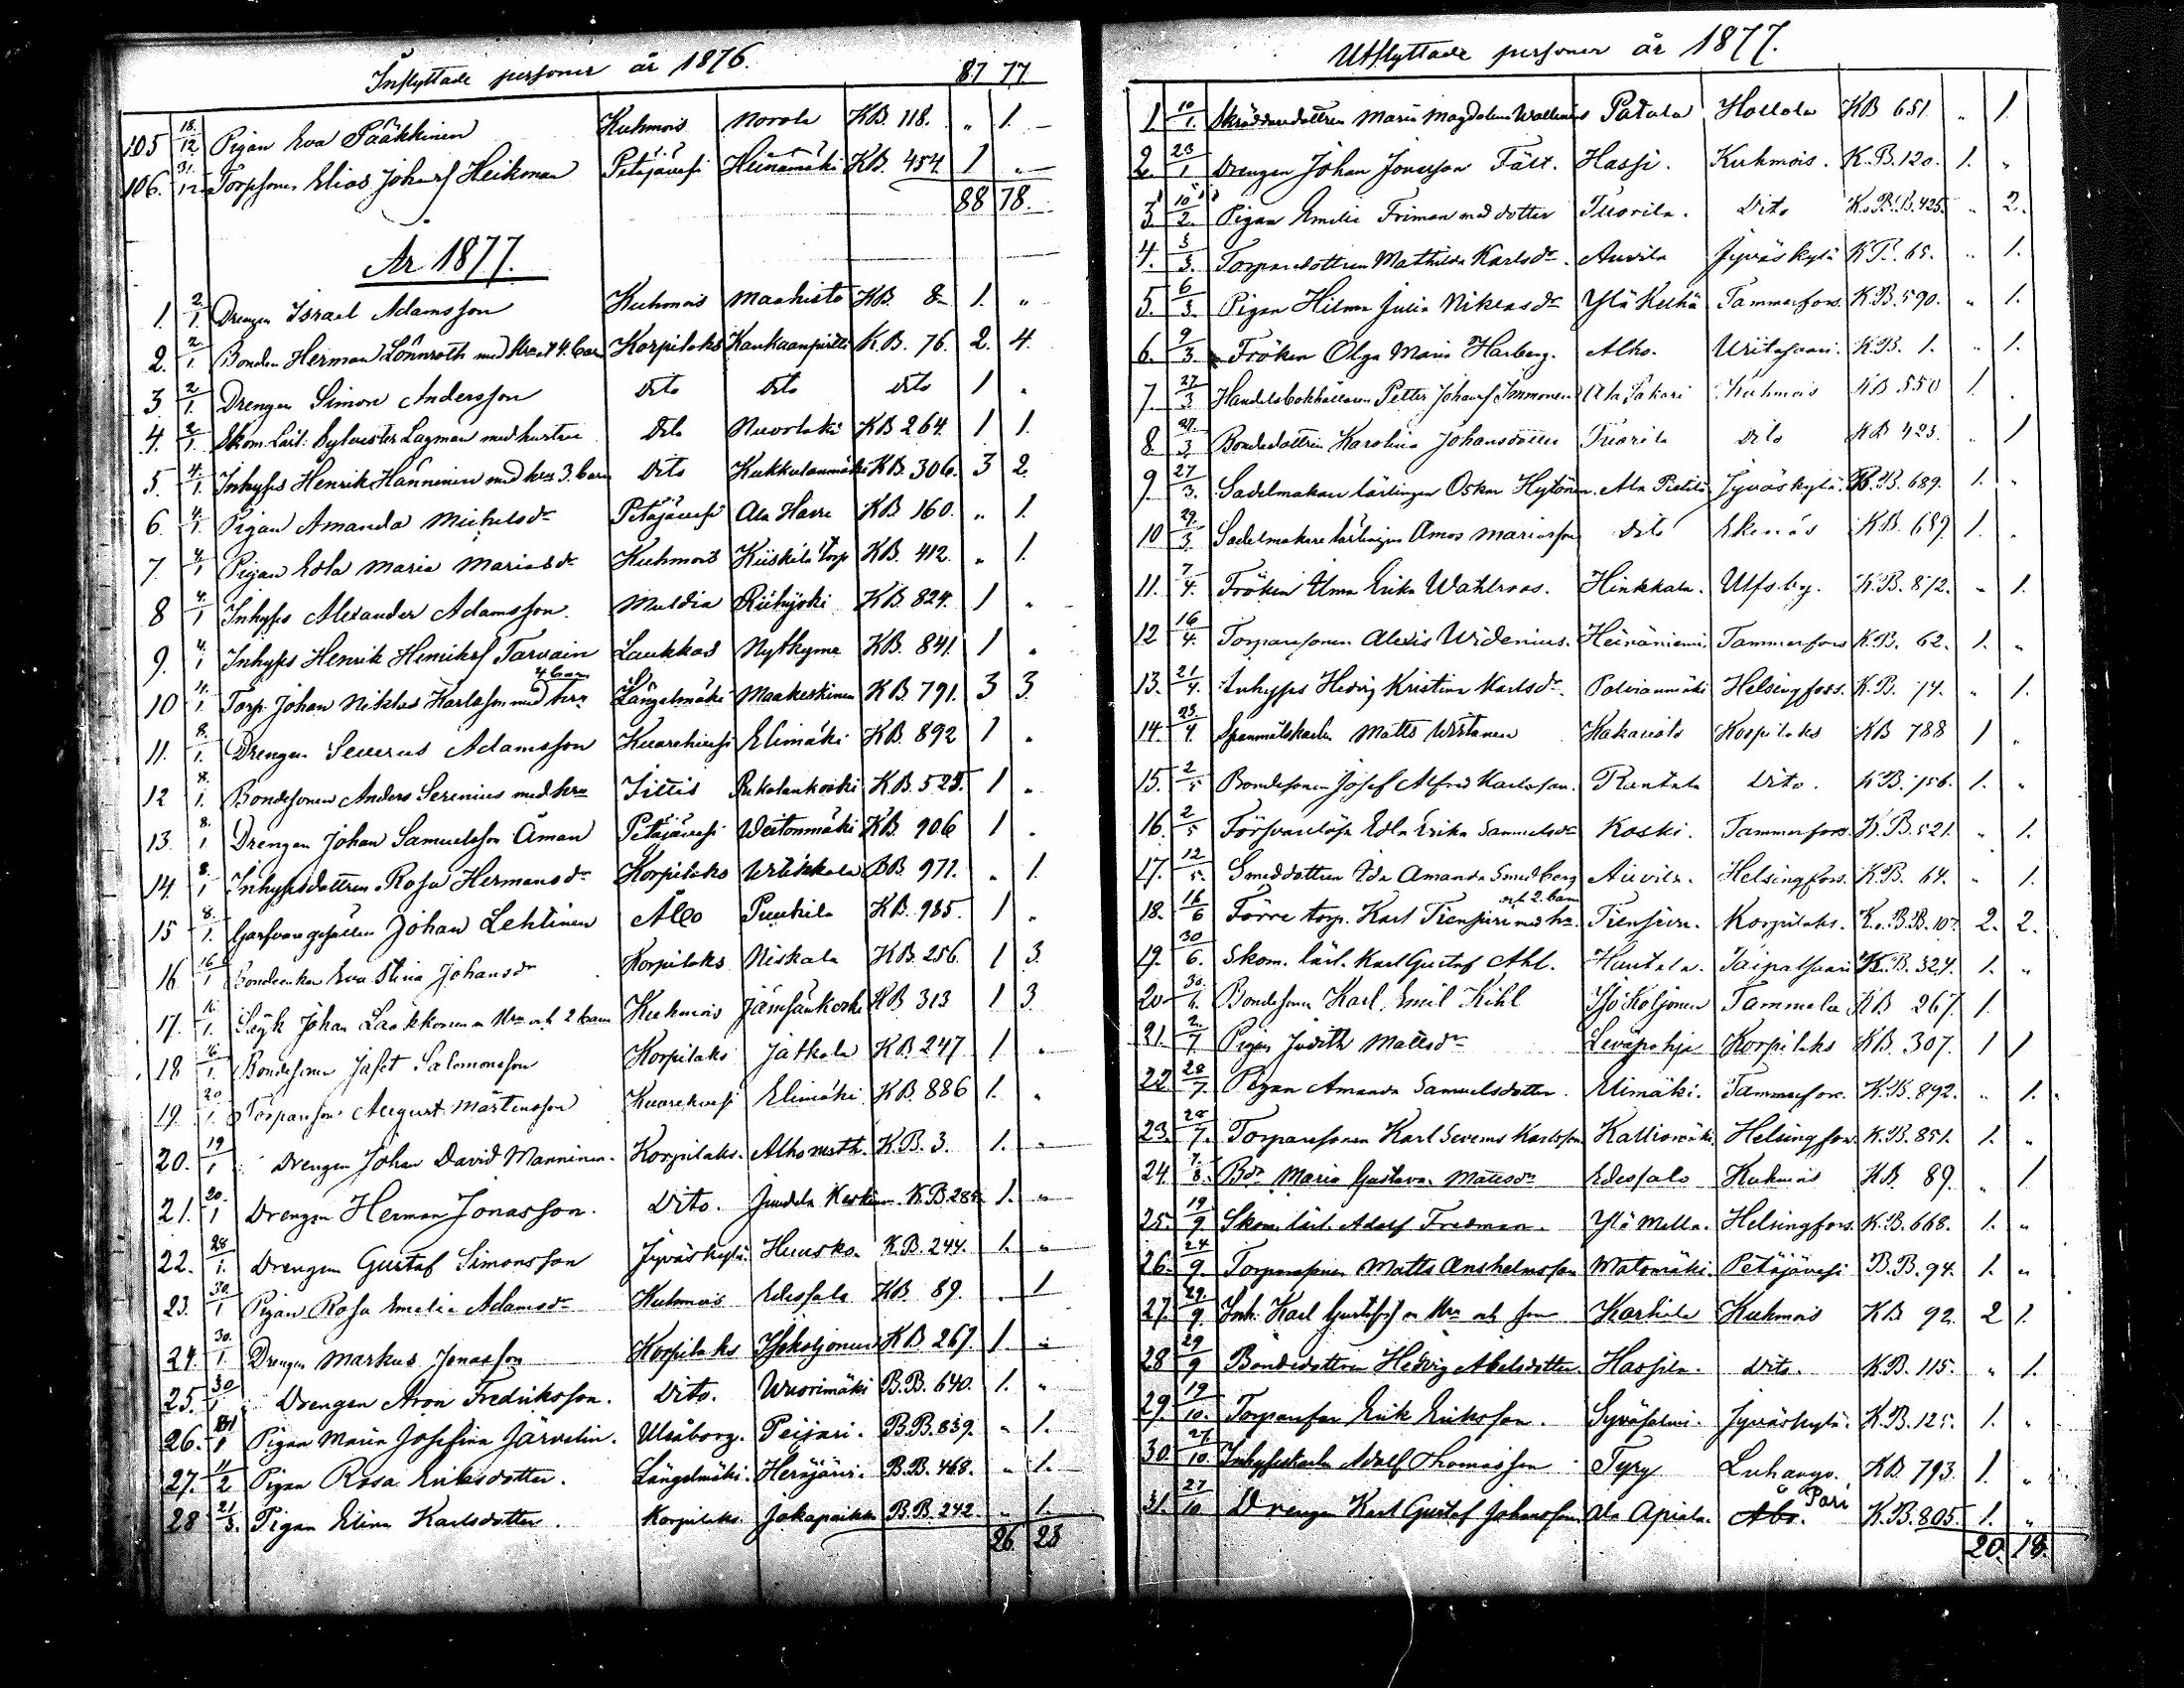 Inflyttade personer år 1876. 87 77
105 18/12 Pigan Eva Pääkkinen Kuhmois Norola KB. 118. „ 1.
106. 31/12 Torpsonen Elias Johansf Heikman Petäjävesi Heinämäki KB. 454. 1 „
88 78.
År 1877.
1. 2/1. Drengen Israel Adamsson Kuhmois Maahisto KB. 8 1. „
2. 2/1. Bonden Herman Lönnroth med hu o 4 barn Korpilaks Kankaanpirtti K.B. 76. 2. 4.
3 2/1. Drengen Simon Andersson dito dito dito 1 „
4. 2/1. Skom. Lärl. Sylvester Lagman med hustru Dito Nuorlaki KB 264. 1 1.
5. 4/1. Inhyses Henrik Hänninen med hu 3. barn Dito Kukkulanmäki KB. 306. 3 2.
6. 4/1. Pigan Amanda Michelsdr Petäjävesi Ala Harre KB 160. „ 1.
7. 4/1 Pigan Edla Maria Mariasdr Kuhmois Kiiskilä Torp KB. 412. „ 1.
8 4/1 Inhyses Alexander Adamsson. Muldia Riihijoki KB. 824. 1 „
9. 4/1 Inhyses Henrik Henriksf Tarvain Laukkas Nytkyme KB. 841. 1 „
4 barn
10 4/1 Torp. Johan Niklas Karlsson med hru Längelmäki Maakeskinen KB 791. 3 3.
11. 8/1. Drengen Severus Adamsson Kuorehvesi Elimäki KB. 892 1 „
12 8/1. Bondesonen Anders Serenius med hru Jittis Rekolankoski KB. 525. 1 „
13. 8/1 Drengen Johan Samuelsson Åman Petäjävesi Weitonmäki KB. 906 1 „
14. 8/1 Inhysesdottren Rosa Hermansdr Korpilaks Urtikkala BB 977. „ 1.
15 8/1. Garfvaregesällen Johan Lehtinen Åbo Puukila KB. 985. 1 „
16 16/1 Bondeenkan Eva Stina Johansdr Korpilaks Niskala KB. 256. 1 3.
17. 16/1. Johan Laakkonen m hru och 2 barn Kuhmois Jämsänkoski KB 313 1 3.
18 16/1. Bondesonen Jafet Salomonsson Korpilaks Jatkola KB. 247 1 „
19. 20/1. Torparson August Mårtensson Kuorehvesi Elimäki KB. 886 1. „
20. 19/1 Drengen Johan David Manninen. Korpilaks. Alho K.B. 3. 1. „
21. 20/1 Drengen Herman Jonasson. Dito. Juudela Keskinen K.B. 285. 1. „
22. 28/1. Drengen Gustaf Simonsson Jyväskylä. Huusko. K.B. 244. 1. „
23. 30/1 Pigan Rosa Emelie Adamsdr Kuhmois Edessalo KB. 89. „ 1
24. 30/1. Drengen Markus Jonasson Korpilaks Ylökoljonen KB 267. 1 „
25. 30/1 Drengen Aron Fredriksson. Dito. Wuorimäki B.B. 640. 1. „
26. Pigan Maria Josefina Järvelin. Uleåborg. Peijari. B.B. 839. „ 1.
27. 11/2 Pigan Rosa Eriksdotter. Längelmäki. Heräjärvi. B.B. 468. „ 1.
28 21/3. Pigan Elina Karlsdotter. Korpilaks. Jokapaikka B.B. 242 „ 1.
26 23
Utflyttade personer år 1877.
1. 10/1. Skräddaredottren Maria Magdalena Wallenius Patala Hollola KB 651. „ 1.
2. 23/1 Drengen Johan Jonasson Fält. Hassi. Kuhmois. K.B. 120. 1. „
3. 10/2. Pigan Emilie Friman med dotter Tuorila. Dito K.o.B.B. 425. „ 2.
4. 3/3. Torparedottren Mathilda Karlsdr. Auvila Jyväskylä K.B. 65. „ 1.
5. 6/3. Pigan Hilma Julia Niklasdr Ylä Kuhä Tammerfors. K.B. 590. „ 1.
6. 9/3. Fröken Olga Maria Harberg. Alho. Uritasaari. K.B. 1. „ 1.
7. 27/3 Handelsbokhållaren Petter Johansf Immonen Ala Sakari Kuhmois KB 550 1 „
8. 27/3 Bondedottren Karolina Johansdotter Tuorila dito KB 425. „ 1
9. 27/3. Sadelmakare lärlingen Oskar Hytönen. Ala Pietilä Jyväskylä. K.B. 689. 1. „
10 29/3. Sadelmakare lärlingen Amos Mariasson dito Ekenäs KB. 689. 1. „
11. 7/4. Fröken Alma Erika Wahlroos. Hinkkala. Ulfsby. K.B. 872. „ 1.
12 16/4. Torparesonen Alexis Widenius. Heinäniemi. Tammerfors K.B. 62. 1. „
13. 21/4. Inhyses Hedvig Kristina Karlsdr. Palvianmäki Helsingfors. K.B. 74. „ 1.
14. 23/4. Spanmålskarlen Matts Wistanen Kakaristo Korpilaks KB 788 1 „
15. 2/5 Bondesonen Josef Alfred Karlsson. Rantala Dito. K.B. 756. 1. „
16. 2/5 Försvarslösa Edla Erika Samuelsdr Koski. Tammerfors. K.B. 521. „ 1.
17. 12/5. Smeddottren Ida Amanda Smedberg Auvila. Helsingfors. K.B. 64. „ 1.
och 2. barn
18. 16/6 Förre torp. Karl Tiensuu med hru. Tiensuu. Korpilaks. K.o.B.B. 107. 2. 2.
19. 30/6. Skom. lärl. Karl Gustaf Ahl. Hautala. Taipalsaari K.B. 324. 1. „
20 30/6. Bondesonen Karl Emil Kihl Ylökoljonen Tammela KB 267. 1.
21. 2/7 Pigan Judith Mattsdr Leväpohja Korpilaks KB. 307. 1 1
22. 28/7. Pigan Amanda Samuelsdotter. Elimäki. Tammerfors. K.B. 892. „ 1.
23. 28/7. Torparesonen Karl Severus Karlsson Kalliomäki. Helsingfors. K.B. 851. 1. „
24. 7/8. Bdr Maria Gustava Mattsdr Edessalo Kuhmois KB. 89. „ 1
25. 19/9 Skom. lärl. Adolf Fredman. Ylä Mella. Helsingfors. K.B. 668. 1. „
26. 24/9. Torparesonen Matts Anshelmsson Matomäki. Petäjävesi B.B. 94. 1. „
27. 29/9 Inh. Karl Gustafsf m hru och son Karhula Kuhmois KB 92. 2 1.
28 29/9 Bondedottren Hedvig Abelsdotter. Hassila. Dito. K.B. 115. „ 1.
29. 19/10. Torparson Erik Eriksson. Syväsalmi. Jyväskylä. K.B. 125. 1. „
30. 27/10 Inhysekarlen Adolf Thomasson Tyry Luhango. KB. 793. 1. „
Pori
31. 27/10 Drengen Karl Gustaf Johansson. Ala Apiala. Åbo. K.B. 805. 1. „
20. 18.